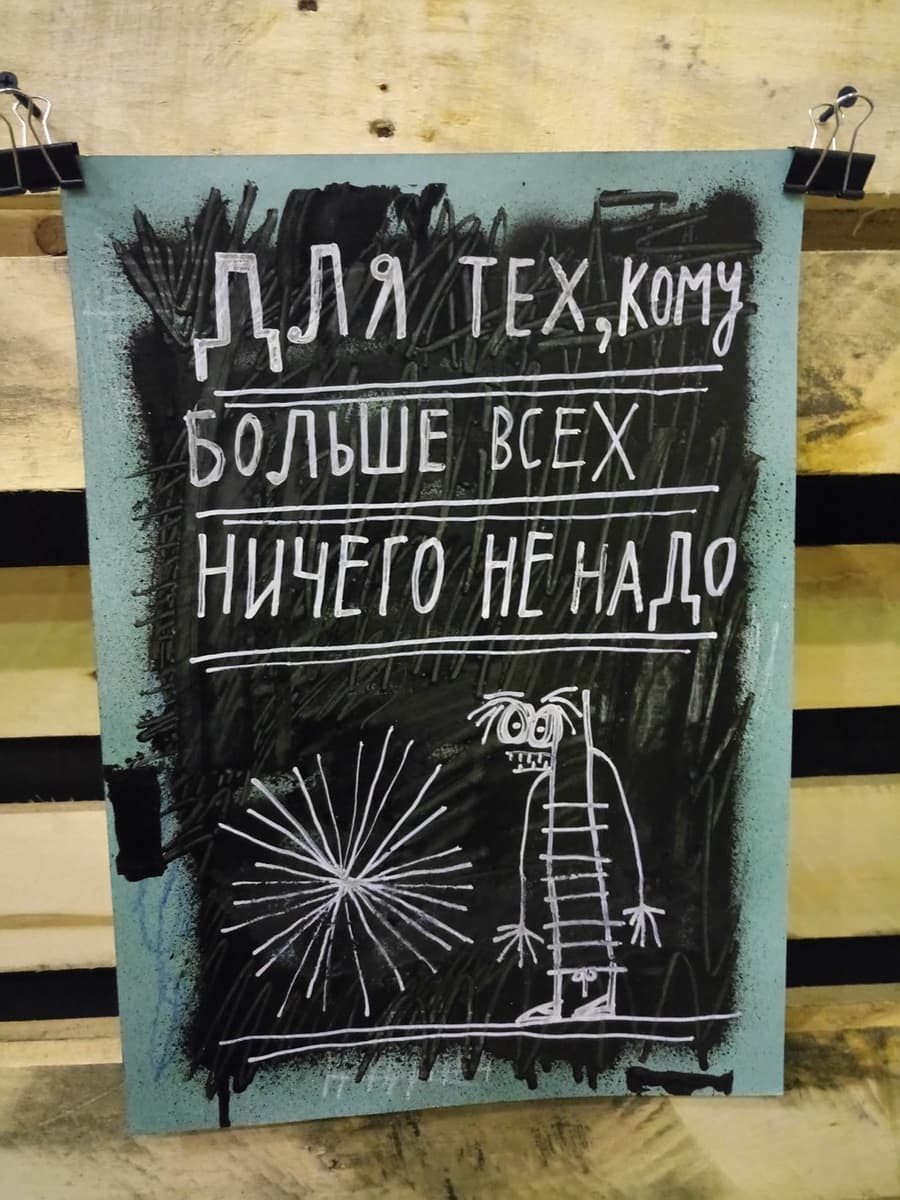 ДЛЯ ТЕХ, КОМУ
БОЛЬШЕ ВСЕХ
НИЧЕГО НЕ НАДО